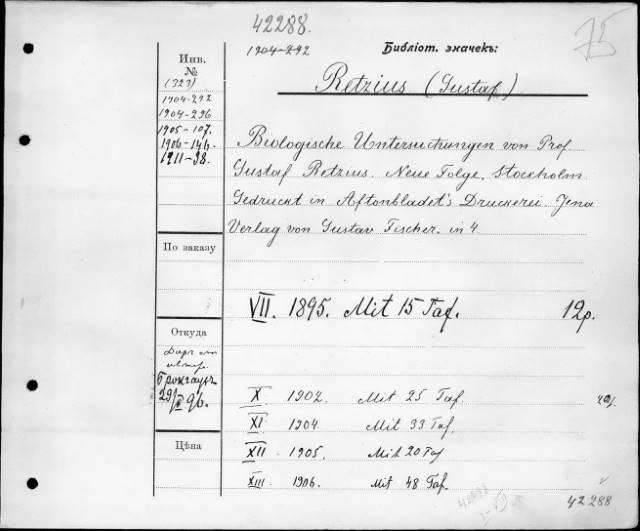 42288.
75
1904-292
Библіот. значекъ:
Инв.
№
(323)
Retzius (Gustaf)
1904-292
1904-296
1905-107.
1906-146.
1911-38.
Biologische Untersuchungen von Prof
Gustaf Retzius. Neue Folge. Stockholm
Gedruckt in Aftonbladet's Druckerei. Jena
Verlag von Gustav Fischer. in 4.
По заказу
VII. 1895. Mit 15 Taf. 12р.
Откуда
Даръ
Брокгаузъ
96.
X. 1902. Mit 25 Taf.
XI 1904. Mit 33 Taf.
Цѣна
XII 1905. Mit 20 Taf
XIII 1906. Mit 48 Taf.
42288